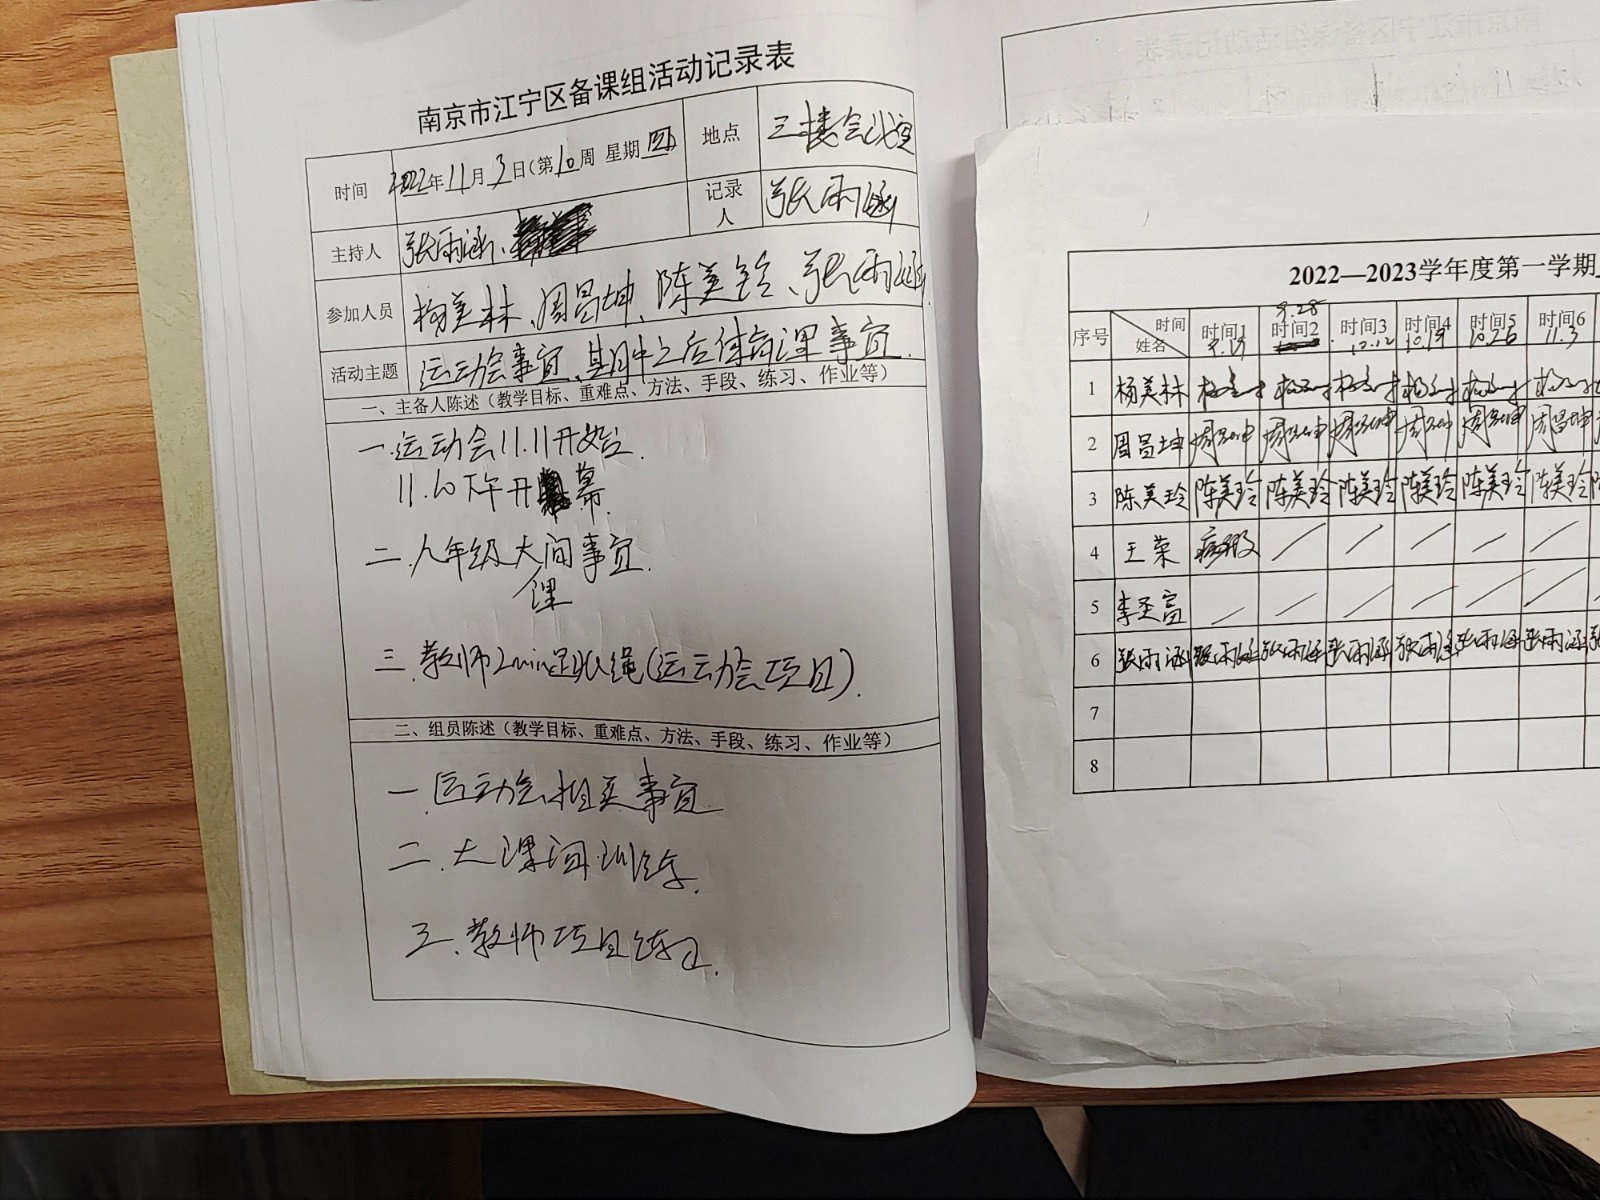 南京市江宁区备课组活动记录表
时间 2022年11月3日(第10周 星期四) 地点 三楼会议室
主持人 张雨涵、 记录人 张雨涵
参加人员 杨美林、周昌坤、陈美玲、张雨涵
活动主题 运动会事宜、期中之后体育课事宜.
一、主备人陈述（教学目标、重难点、方法、手段、练习、作业等）
一.运动会11.11开始.
11.10下午开幕.
二.九年级大课间事宜.
三.教师2min跳绳(运动会项目).
二、组员陈述（教学目标、重难点、方法、手段、练习、作业等）
一.运动会相关事宜.
二.大课间训练.
三.教师项目练习.
2022—2023学年度第一学期
序号 时间 姓名 时间1 9.28 时间2 时间3 10.12 时间4 10.19 时间5 10.26 时间6 11.3
1 杨美林
2 周昌坤 周昌坤 周昌坤 周昌坤 周昌坤 周昌坤 周昌坤
3 陈美玲 陈美玲 陈美玲 陈美玲 陈美玲 陈美玲 陈美玲
4 王荣 病假
5 李圣富
6 张雨涵 张雨涵 张雨涵 张雨涵 张雨涵 张雨涵 张雨涵
7
8